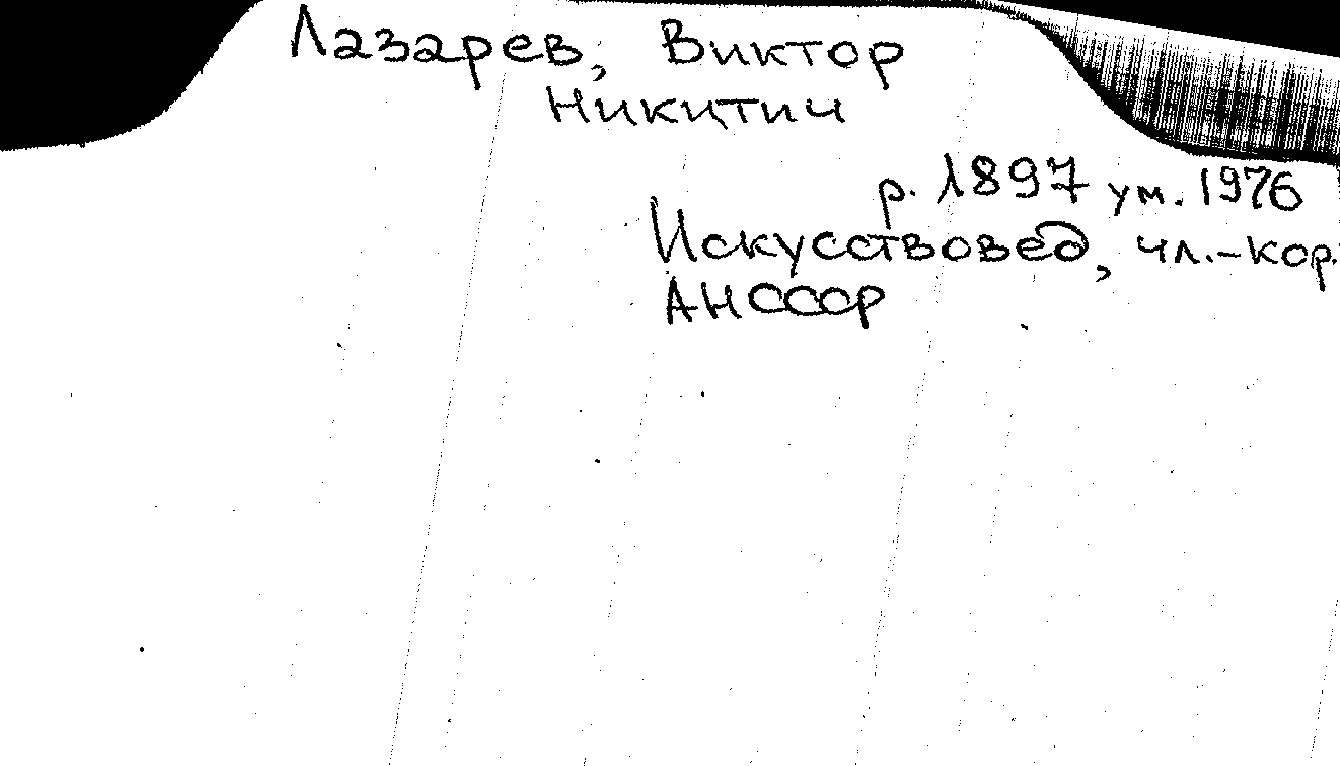 Лазарев, Виктор
Никитич
р. 1897 ум. 1976
Искусствовед, чл.-кор.
АНСССР